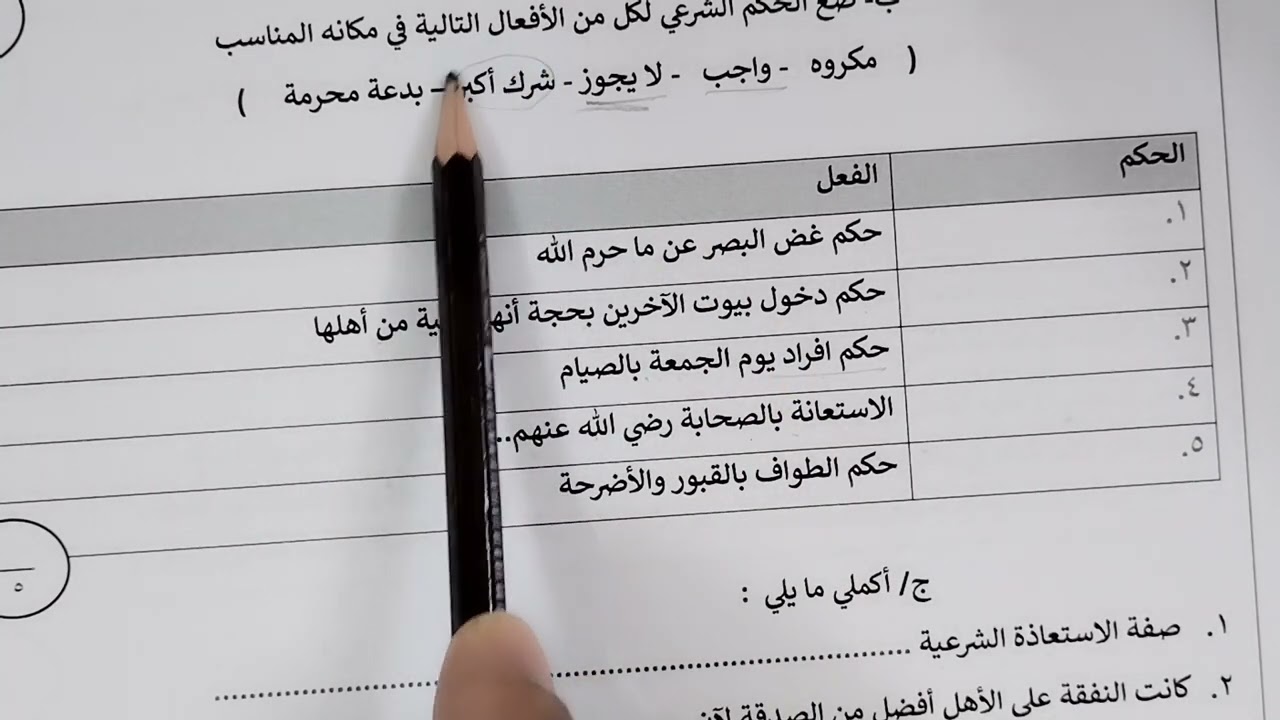 ب- ضع الحكم الشرعي لكل من الأفعال التالية في مكانه المناسب
( مكروه - واجب - لا يجوز - شرك أكبر - بدعة محرمة )
الحكم الفعل
١. حكم غض البصر عن ما حرم الله
٢. حكم دخول بيوت الآخرين بحجة من أهلها
٣. حكم افراد يوم الجمعة بالصيام
٤. الاستعانة بالصحابة رضي الله عنهم..
٥. حكم الطواف بالقبور والأضرحة
٥
ج/ أكملي ما يلي :
١. صفة الاستعاذة الشرعية ........................................
٢. كانت النفقة على الأهل أفضل من الصدقة لأن